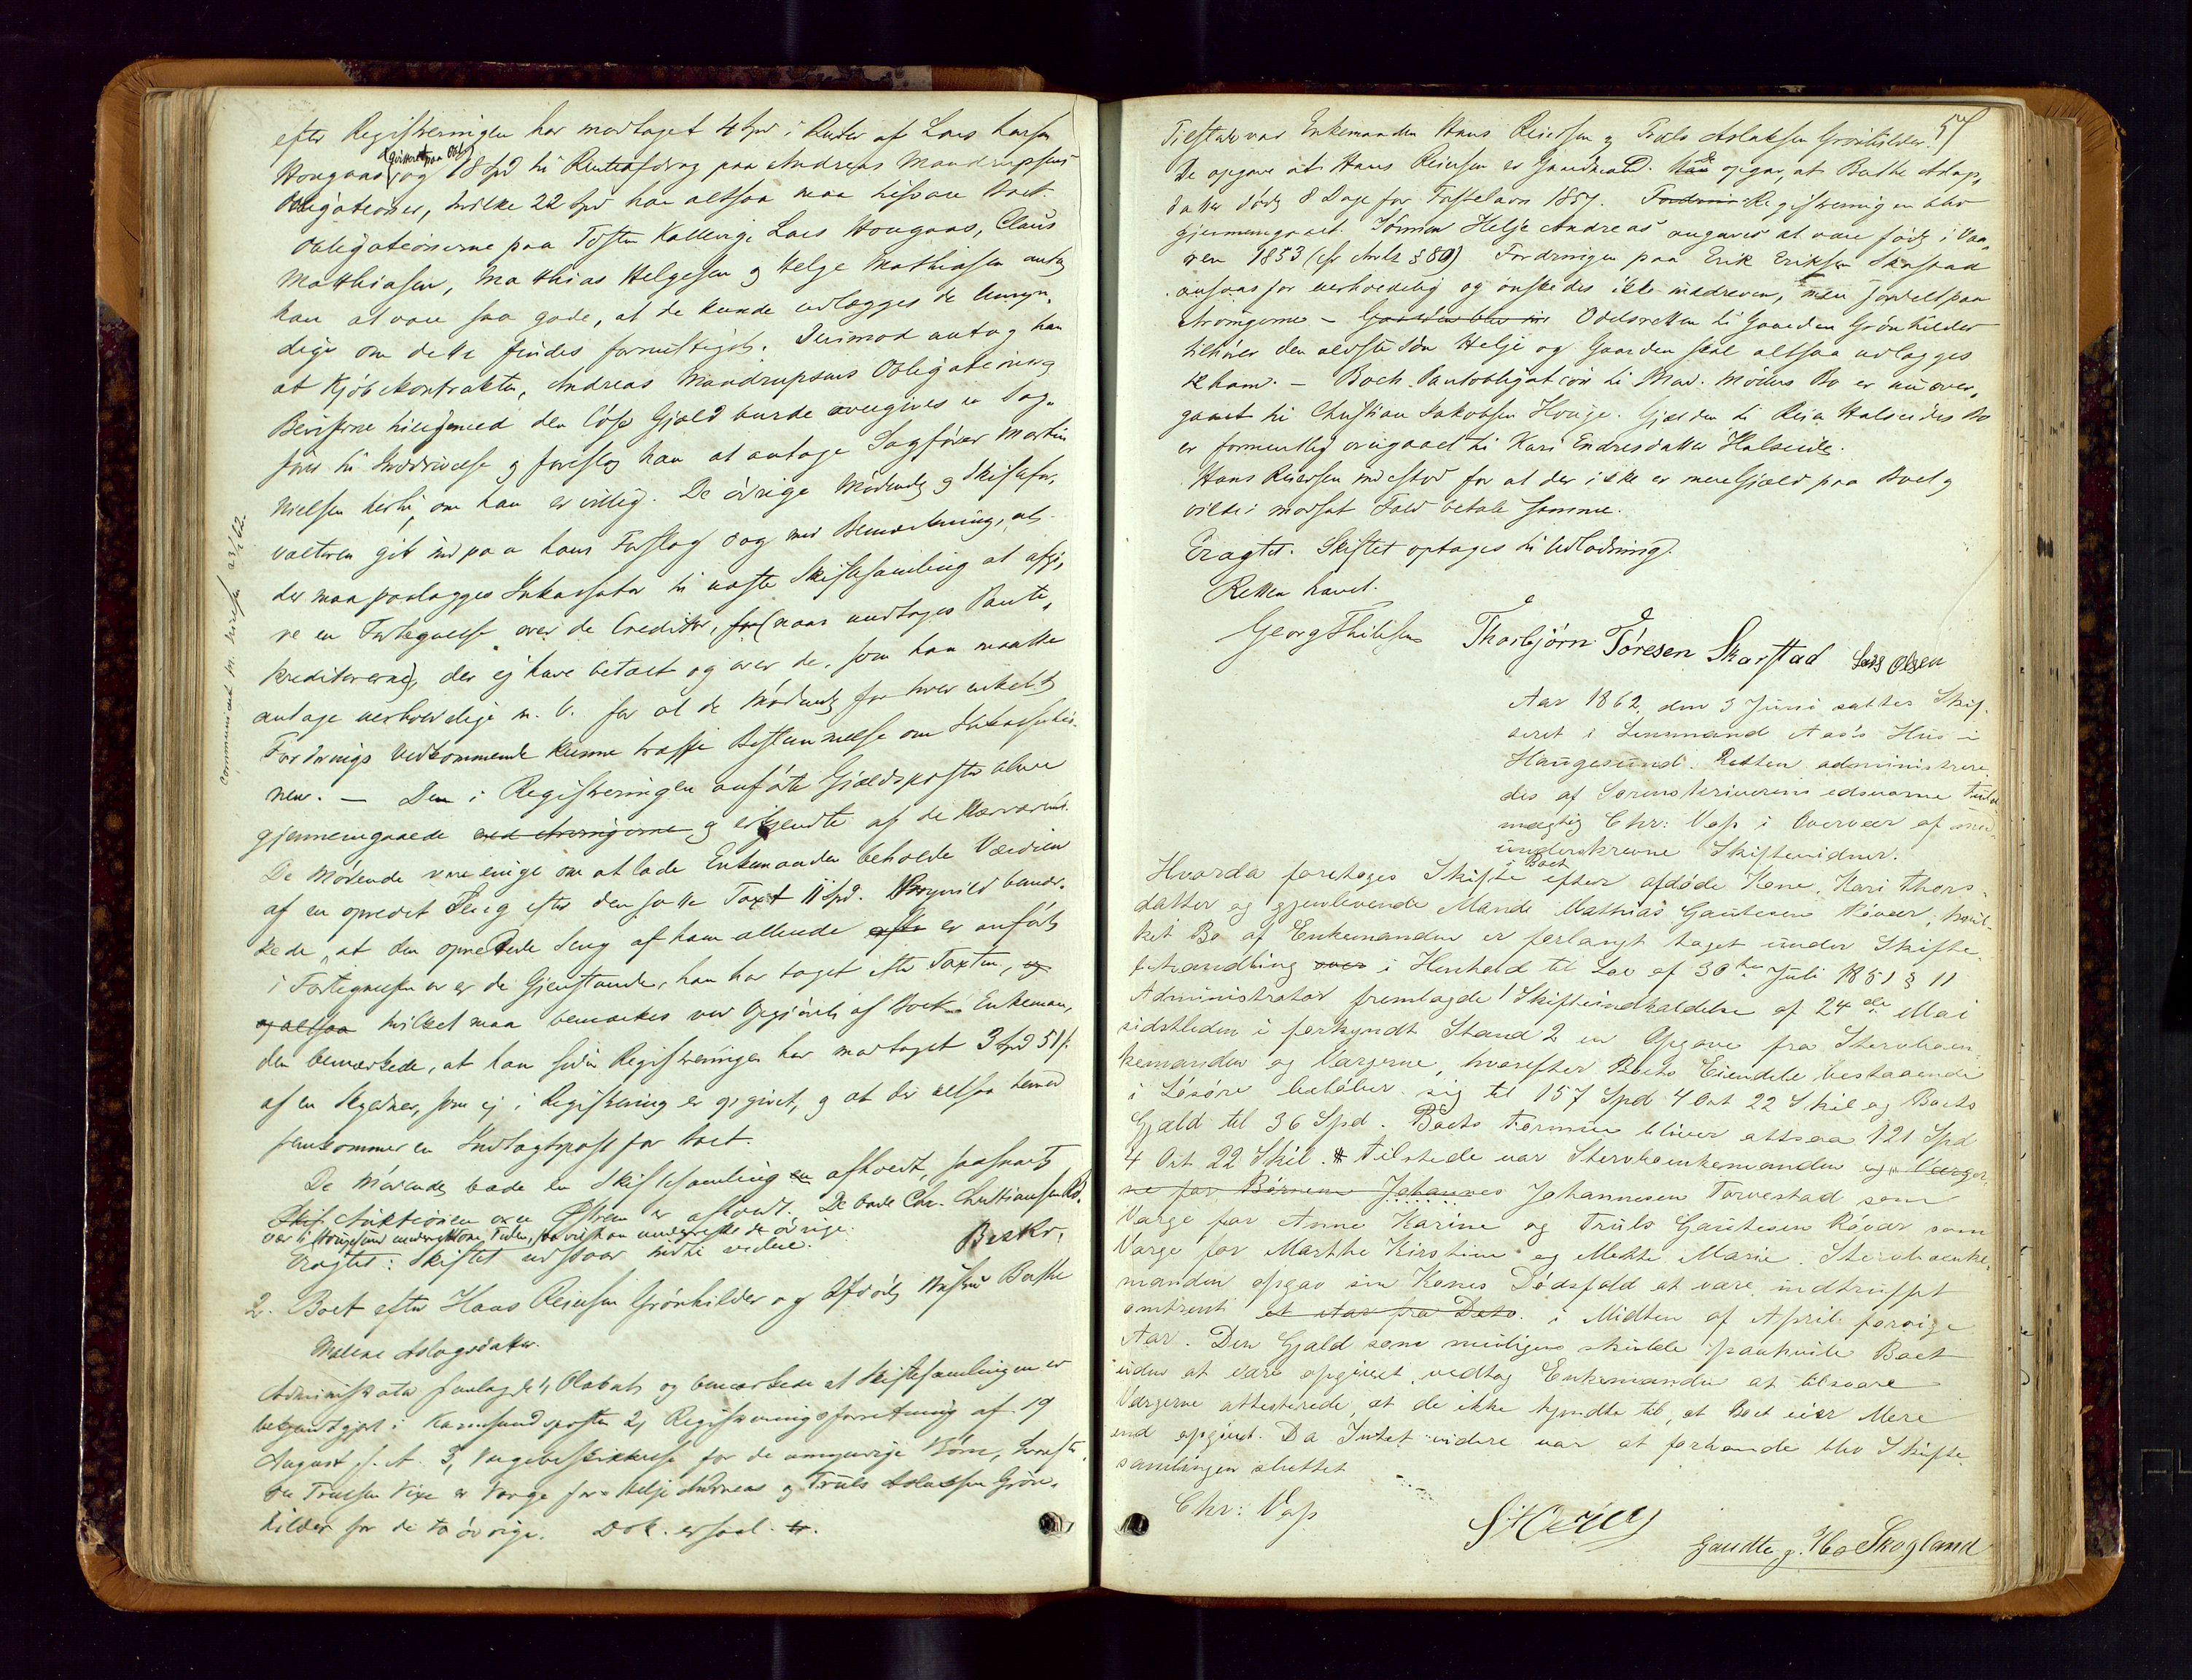 efter Registreringen har modtaget 4 Spd i Renter af Lars Larsen
Hougaas (qvitteret paa Obl) og 18 Spd til Renteafdrag paa Andreas Mandrupsens
Obligationer, hvilke 22 Spd han altsaa maa tilsvare Boet.
Obligationerne paa Tosten Kallevig, Lars Hougaas, Claus
Matthiasen, Matthias Helgesen og Helge Mathiasen antog
han at være saa gode, at de kunde udlægges de Umyn-
dige om dette findes fornuftigt. Derimod antog han
at Kjöbekontrakten, Andreas Mandrupsens Obligation og
Beviserne tilligemed den löse Gjæld burde overgives en Sag-
förer til Inddrivelse og foreslog han at antage Sagförer Martin
Nielsen hertil, om han er villig. De övrige Mödende og Skifsfor-
valteren gik ind paa hans Forslag dog med Bemærkning, at
der maa paalægges Inkassator til næste Skiftesamling at afgi-
ve en Fortegnelse over de Creditorer, (naar undtages Pante-
kreditorerne), der ej have betalt og over de, som han maatte
antage uerholdelige m. v. for at de Mödende for hver enkelt
Fordrings Vedkommende kunne træffe Bestemmelse om Inkassatio-
nen. — De i Registreringen anförte Gjældsposter bleve
gjennemgaaede med Arvingerne og erkjendte af de Nærværende.
De Mödende vare enige om at lade Enkemanden beholde Værdien
af en opredt Seng efter den satte Taxt 11 Spd. bemær-
kede, at den opredte Seng af ham allerede er anfört
i Fortegnelsen over de Gjenstande, han har taget efter Taxten, og
og altsaa hvilket maa bemærkes ved Opgjöret af Boet. Enkeman-
den bemærkede, at han siden Registreringen har modtaget 3 Spd 51 s.
af en Skyldner, som ej i Registrering er opgivet, og at der altsaa herved
fremkommer en Indtægtspost for Boet.
De Mödende bade en Skiftesamling afholdt, saasnart
Skif Auktionen over er afholdt. De bade Chr. Christiansen
Eragtet: Skiftet udstaar indtil videre.
2. Boet efter Hans Reiersen Grönhilder og afdöde Hustru Berthe
Malene Aslagsdatter.
Administrator fremlagde 1, Olabuts og bemærkede at Skiftesamlingen er
bekjendtgjort i Karmsundsposten 2, Registreringsforretning af 19
August f. A. 3, Værgebeskikkelse for de umyndige Börn, hvorefter
Ole Truesen Vixe er Værge for Helje Andreas og Truls Aslaksen Grön-
hilder for de to övrige. Dok. ersaal.
Communiceret M. Nielsen 23/7 62.
57
Tilstede var Enkemanden Hans Reiersen og Truls Aslaksen Grönhilder.
De opgave at Hans Reiersen er Gaardmand. De opgav, at Berthe Aslags-
datter döde 8 Dage för Fastelavn 1857. Fordrin Registreringen blev
gjennemgaaet. Sönnen Helje Andreas angaves at være födt i Vaa-
ren 1853 (cfr Arvelv § 80). Fordringen paa Erik Eriksen Skaftad
ansaas for uerholdelig og önskedes ikke inddreven, men fordelt paa
Arvingerne — Gaarden blev in Odelsretten til Gaarden Grönhilder
tilhörer den ældste Sön Helje og Gaarden skal altsaa udlægges
til ham. — Boets Pantobligation til Mad. Möllers Bo er nu over-
gaaet til Christian Jakobsen Houge. Gjælden til Reier Halseides Bo
er formentlig overgaaet til Kari Endresdatter Halseide.
Hans Reiersen indestod for at der ikke er mere Gjæld paa Boet og
vilde i modsat Fald betale samme.
Eragtet. Skiftet optages til Udlodning.
Retten hævet.
Georg Thilesen Thorbjørn Tøresen Skarstad Lars Olsen
Aar 1862, den 3 Juni sattes Skif-
teret i Lensmand Aaö's Hus i
Haugesund. Retten administrere-
des af Sorenskriverens edsvorne Fuld-
mægtig Chr: Vosz i Overvær af med
underskrevne Skiftevidner.
Hvorda foretoges Skifte i Boet efter afdöde Kone Kari Thors-
datter og gjenlevende Mand Mathias Gautesen Röver, hvil-
ket Bo af Enkemanden er forlangt taget under Skifte-
behandling over i Henhold til Lov af 30te Juli 1851 § 11
Administrator fremlagde 1 Skifteindkaldelse af 24de Mai
sidstleden i forkyndt Stand 2 en Opgave fra Stervboen-
kemanden og Værgerne, hvorefter Boets Eiendele bestaaende
i Lösöre belöber sig til 157 Spd 4 Ort 22 Skil og Boets
Gjæld til 36 Spd. Boets Formue bliver altsaa 121 Spd
4 Ort 22 Skil. Tilstede var Stervboenkemanden og Værger-
ne for Börnene Johannes Johannesen Torvestad som
Værge for Anne Karine og Truls Gautesen Röver som
Værge for Marthe Kirstine og Mette Marie. Stervboenke-
manden opgav sin Kones Dödsfald at være indtruffet
omtrent et Aar fra Dato i Midten af April forrige
Aar. Den Gjæld som muligens skulde paahvile Boet
uden at være opgivet, vedtog Enkemanden at tilsvare
Værgerne attesterede, at de ikke kjendte til, at Boet eier Mere
end opgivet. Da Intet videre var at forhandle blev Skifte-
samlingen sluttet
Chr: Vosz
Gaudte J. Ho Skogland